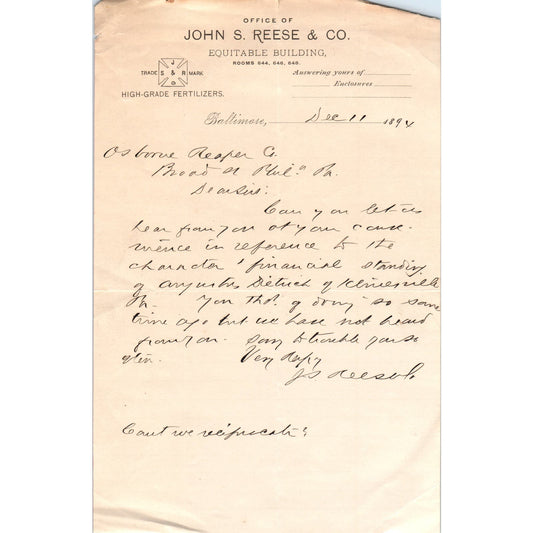 OFFICE OF
JOHN S. REESE & CO.
EQUITABLE BUILDING,
ROOMS 644, 646, 648.
J
TRADE S & R MARK
Co
HIGH-GRADE FERTILIZERS.
Answering yours of
Enclosures
Baltimore, Dec 11 1894
Osborne Reaper Co
Broad St Phila Pa.
Dear Sirs:
Can you let us
hear from you at your conve-
nience in reference to the
character & financial standing
of Augustus Dietrich of Klinesville
Pa. You tho't of doing so some
time ago but we have not heard
from you. Sorry to trouble you so
often. Very Respy
J S Reese & Co
Can't we reciprocate?